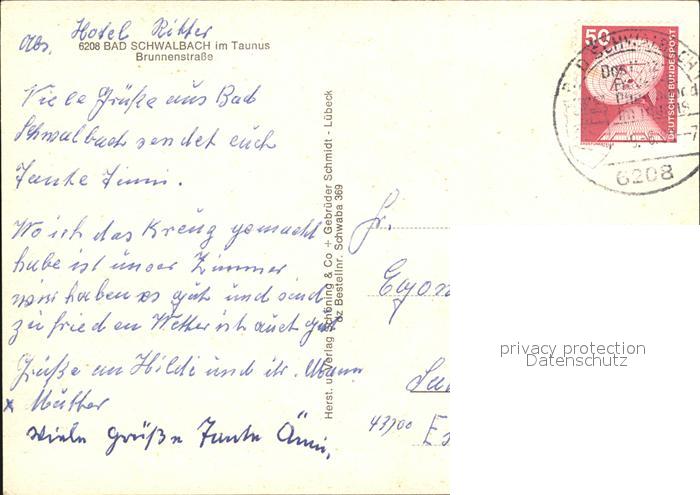 Abs. Hotel Ritter
6208 BAD SCHWALBACH im Taunus
Brunnenstraße
Viele Grüße aus Bad
Schwalbach sendet euch
Tante Zinni.
Wo ich das Kreuz gemacht
habe ist unser Zimmer
wir haben es gut und sind
zufrieden Wetter ist auch gut
Grüße an Hildi und ihr. Mann
x Mutter
viele Grüße Tante Änni.
Herst. u. Verlag Schöning & Co + Gebrüder Schmidt - Lübeck
öz Bestellnr. Schwaba 369
50
DEUTSCHE BUNDESPOST
BAD SCHWALBACH
6208
Fr.
Egon
4300 Es
privacy protection
Datenschutz